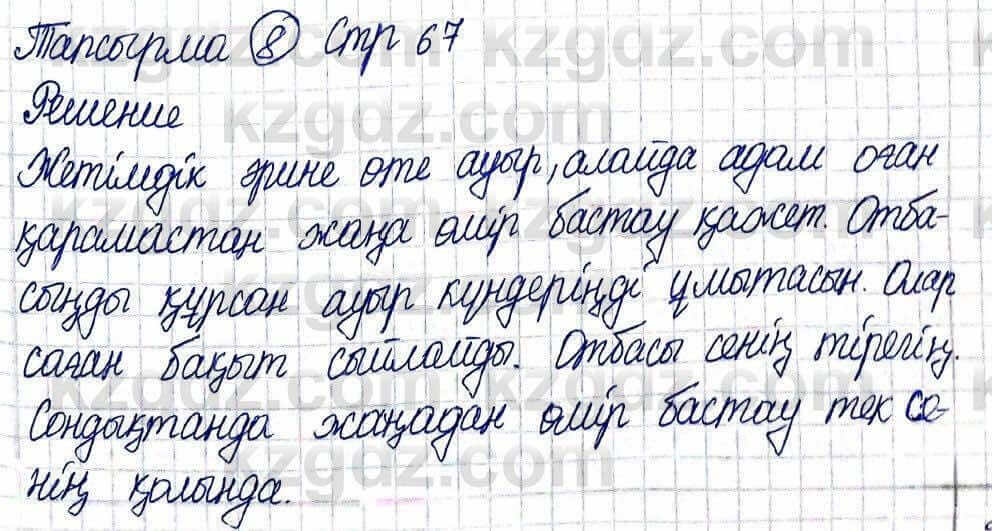 Тапсырма 8 Стр 67
Решение
Жетімдік әрине өте ауыр, алайда адам оған
қарамастан жаңа өмір бастау қажет. Отба-
сыңды құрсаң ауыр күндеріңді ұмытасын. Олар
саған бақыт сыйлайды. Отбасы сенің тірегің.
Сондықтанда жаңадан өмір бастау тек се-
нің қолында.